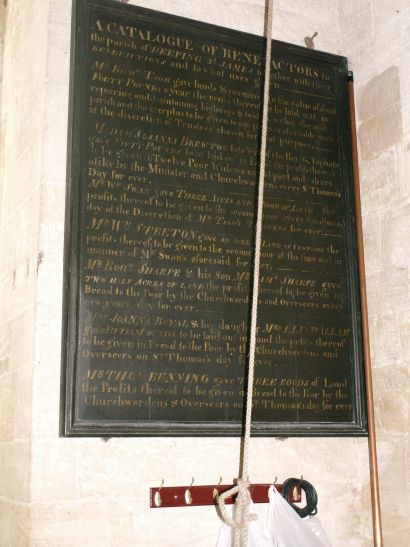 A CATALOGUE OF BENEFACTORS to
the parish of DEEPING St JAMES together with their
BENEFACTIONS and to what uses
Mr Robt Tigh gave lands
FORTY POUNDS a year the rents thereof to be laid out in
repairing and maintaining highways
parish and the overplus to be given to any
at the discretion of Trustees chosen for that purpose.
MADAM ALSANNA BREWTON late Wife of the Rev
gave FIFTY POUNDS to be laid out in Land the profits thereof
to be given to Twelve Poor Widows share
alike by the Minister and Churchwardens every St Thomas's
Day for ever.
Mr Wm SWAN gave THREE ACRES AND A ROOD OF LAND the
profits thereof to be given to the second poor every Candlemas
day at the Discretion of Mr Tighs for ever
Mr Wm STRETON gave an ACRE of LAND in the
profits thereof to be given to the second poor at the time and in
manner of Mr Swan's aforesaid for ever
Mr ROBt SHARPE & his Son Mr SHARPE gave
TWO HALF ACRES OF LAND the profits thereof to be given in
Bread to the Poor by the Churchwardens and Overseers every
years day for ever.
Mrs JOANNA ROYAL & her daughter Mrs
gave FIFTEEN POUNDS to be laid out in Land the profits thereof
to be given in Bread to the Poor by the Churchwardens and
Overseers on St Thomas's day for ever.
Mr THOs BUNNING gave THREE ROODS of Land
the Profits thereof to be given in Bread to the Poor by the
Churchwardens & Overseers on St Thomas's day for ever